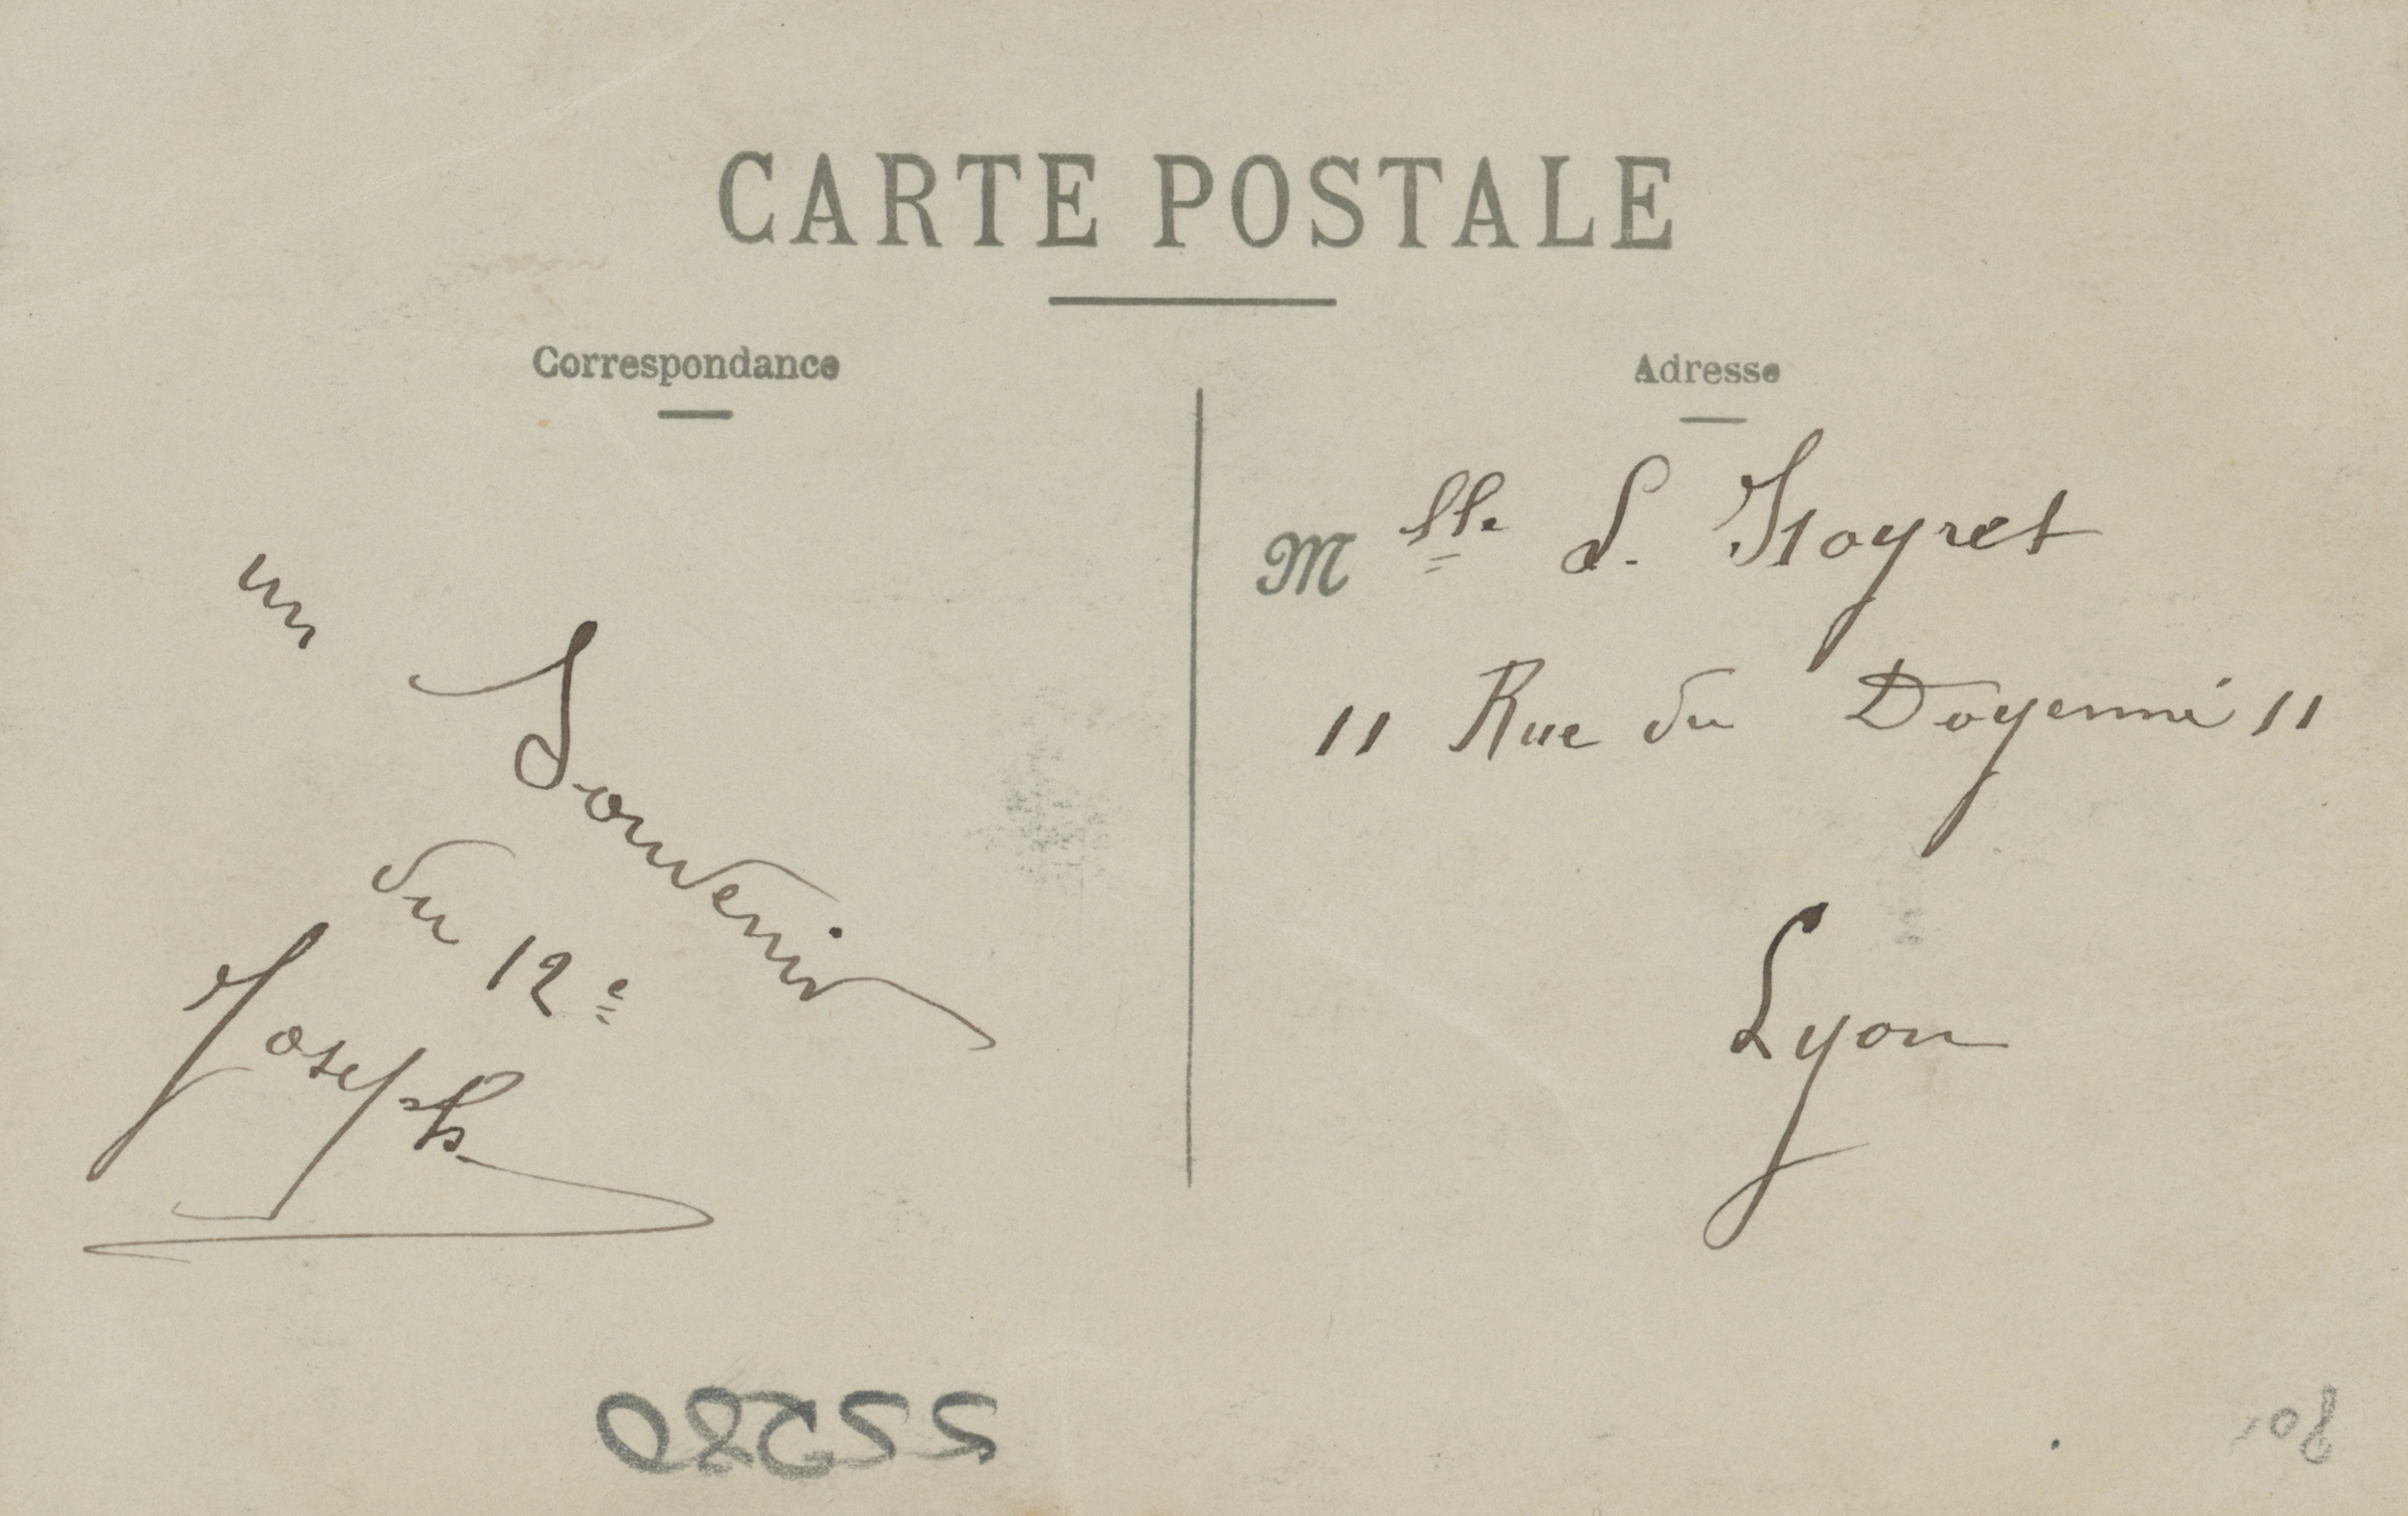 CARTE POSTALE
Correspondance
un
Souvenir
du 12e
Joseph
Adresse
Mlle S.
11 Rue du Doyenné 11
Lyon
55280